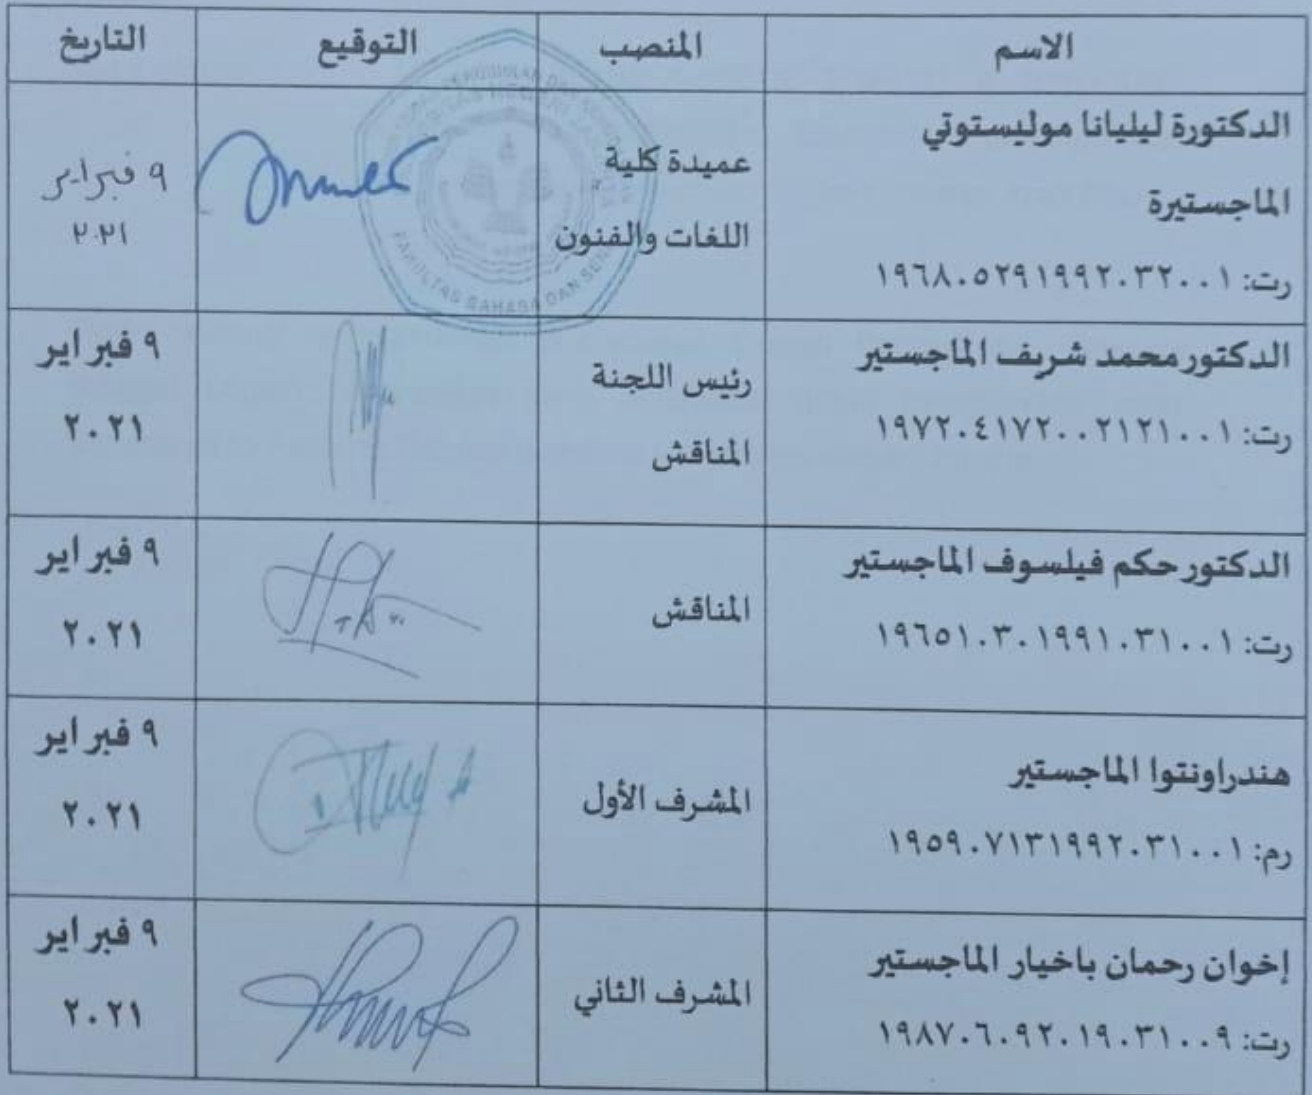 الاسم المنصب التوقيع التاريخ
الدكتورة ليليانا موليستوتي
الماجستيرة
رت: ١٩٦٨٠٥٢٩١٩٩٢٠٣٢٠٠١
عميدة كلية
اللغات والفنون
FAKULTAS BAHASA DAN SENI
٩ فبراير
٢٠٢١
الدكتور محمد شريف الماجستير
رت: ١٩٧٢٠٤١٧٢٠٠٢١٢١٠٠١
رئيس اللجنة
المناقش
٩ فبراير
٢٠٢١
الدكتور حكم فيلسوف الماجستير
رت: ١٩٦٥١٠٣٠١٩٩١٠٣١٠٠١
المناقش
٩ فبراير
٢٠٢١
هندراونتوا الماجستير
رم: ١٩٥٩٠٧١٣١٩٩٢٠٣١٠٠١
المشرف الأول
٩ فبراير
٢٠٢١
إخوان رحمان باخيار الماجستير
رت: ١٩٨٧٠٦٠٩٢٠١٩٠٣١٠٠٩
المشرف الثاني
٩ فبراير
٢٠٢١